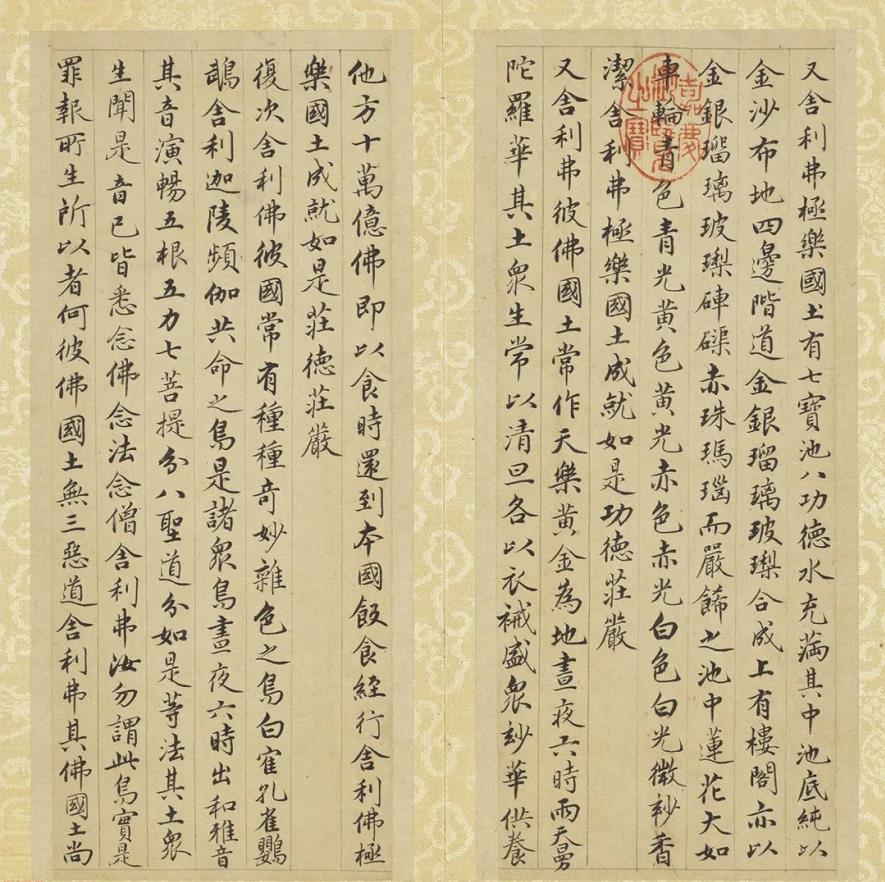 又舍利弗極樂國土有七寶池八功德水充滿其中池底純以
金沙布地四邊階道金銀瑠璃玻瓈合成上有樓閣亦以
金銀瑠璃玻瓈硨磲赤珠瑪瑙而嚴飾之池中蓮花大如
車輪青色青光黃色黃光赤色赤光白色白光微玅香
潔舍利弗極樂國土成就如是功德莊嚴
又舍利弗彼佛國土常作天樂黃金為地晝夜六時雨天曼
陀羅華其土眾生常以清旦各以衣裓盛眾玅華供養
他方十萬億佛即以食時還到本國飯食經行舍利佛極
樂國土成就如是莊德莊嚴
復次舍利佛彼國常有種種奇妙雜色之鳥白隺孔雀鸚
鵡舍利迦陵頻伽共命之鳥是諸眾鳥晝夜六時出和雅音
其音演暢五根五力七菩提分八聖道分如是等法其土眾
生聞是音已皆悉念佛念法念僧舍利弗汝勿謂此鳥實是
罪報所生所以者何彼佛國土無三惡道舍利弗其佛國土尚
嘉慶御覽之寶